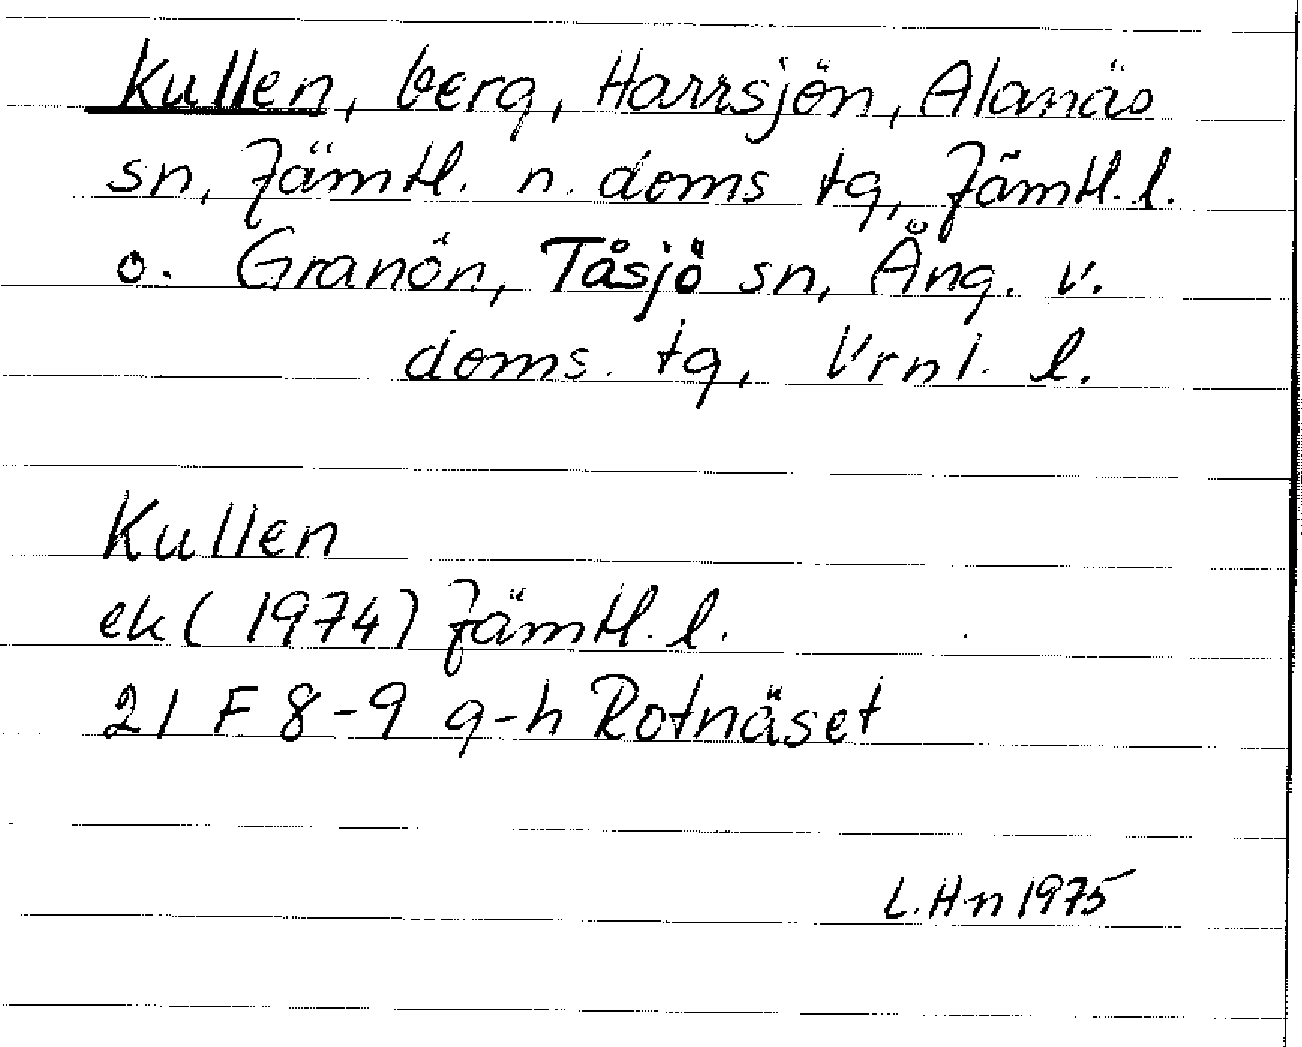 Kullen, berg, Harrsjön, Alanäs
sn, Jämtl. n. doms tg, Jämtl. l.
o. Granön, Tåsjö sn, Ång. v.
doms. tg, Vrnl. l.
Kullen
ek (1974) Jämtl. l.
21 F 8-9 g-h Rotnäset
L. Hn 1975